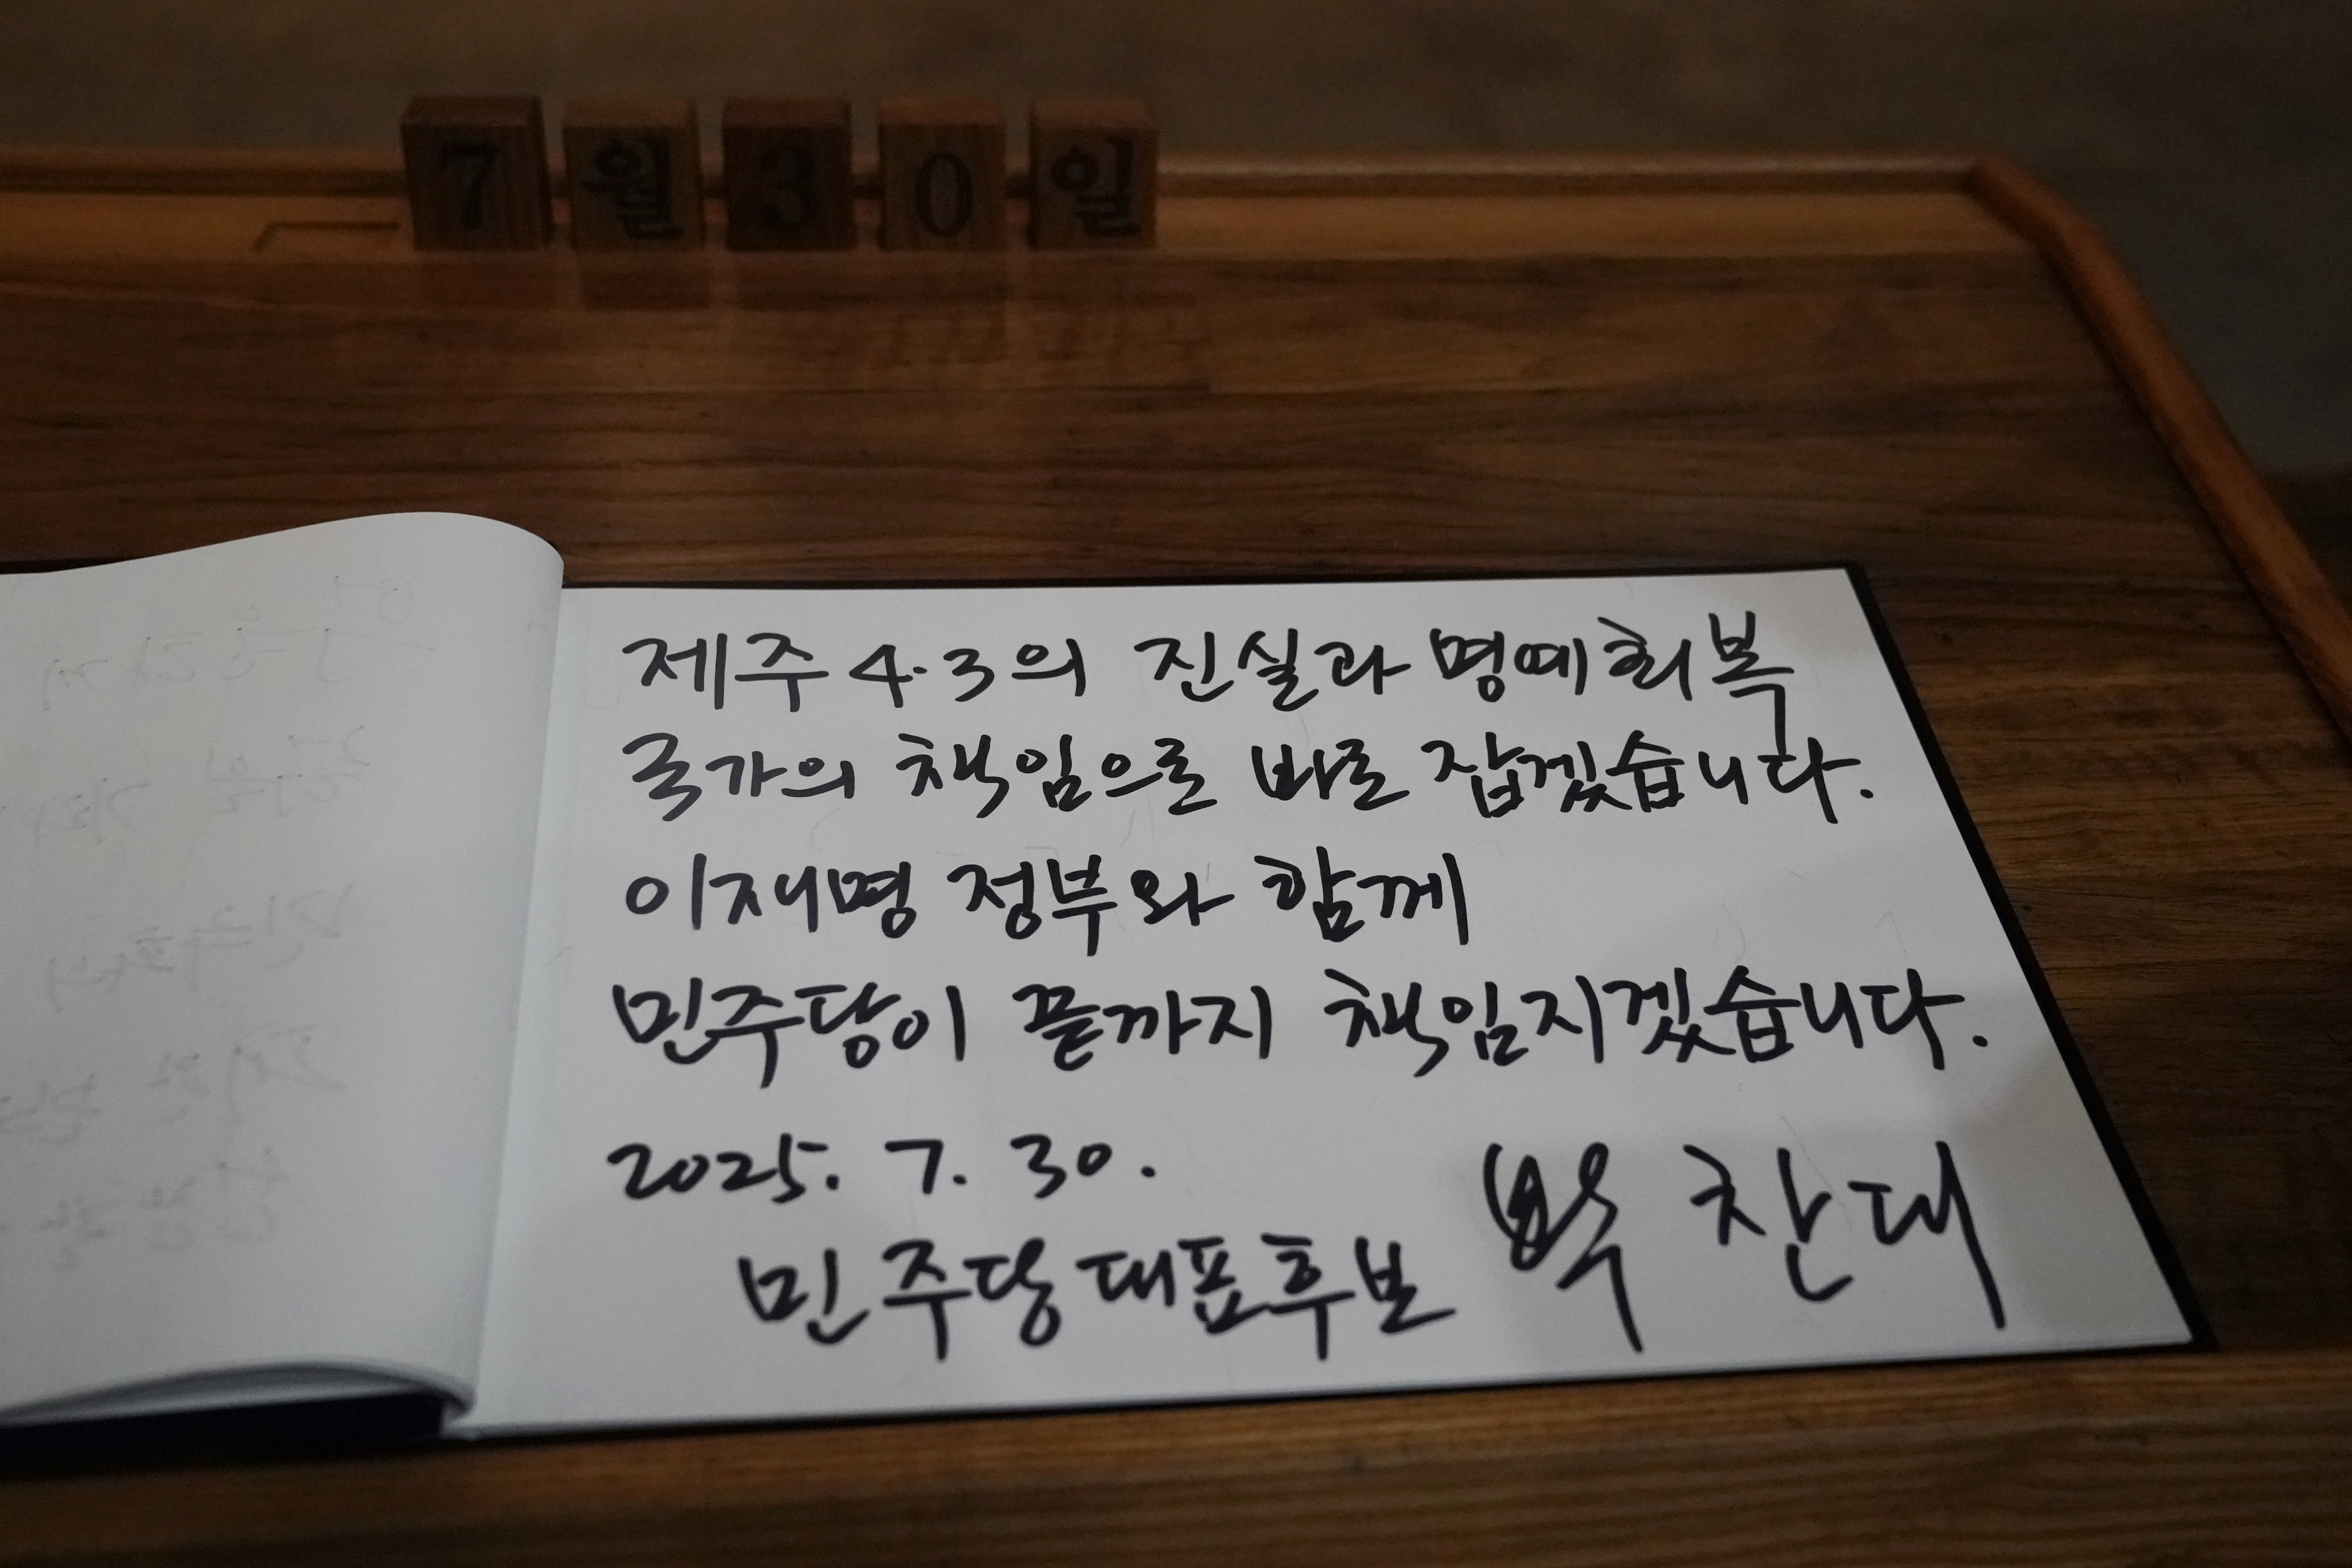 7월30일
제주4·3의 진실과 명예회복
국가의 책임으로 바로 잡겠습니다.
이재명 정부와 함께
민주당이 끝까지 책임지겠습니다.
2025. 7. 30.
민주당대표후보 박찬대